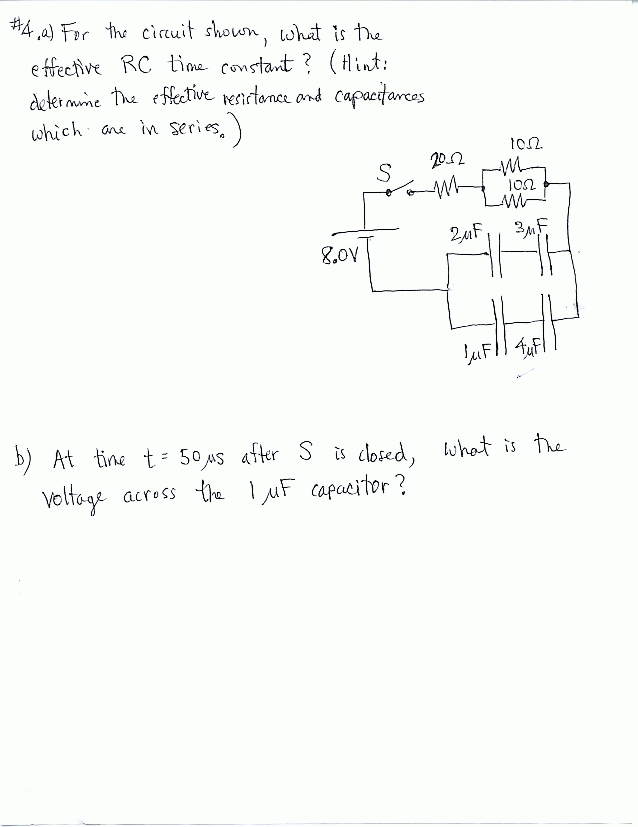 #4.a) For the circuit shown, what is the
effective RC time constant? (Hint:
determine the effective resistance and capacitances
which are in series.)
10Ω
20Ω
S
10Ω
2μF
3μF
8.0V
1μF
4μF
b) At time t = 50 μs after S is closed, what is the
voltage across the 1 μF capacitor?